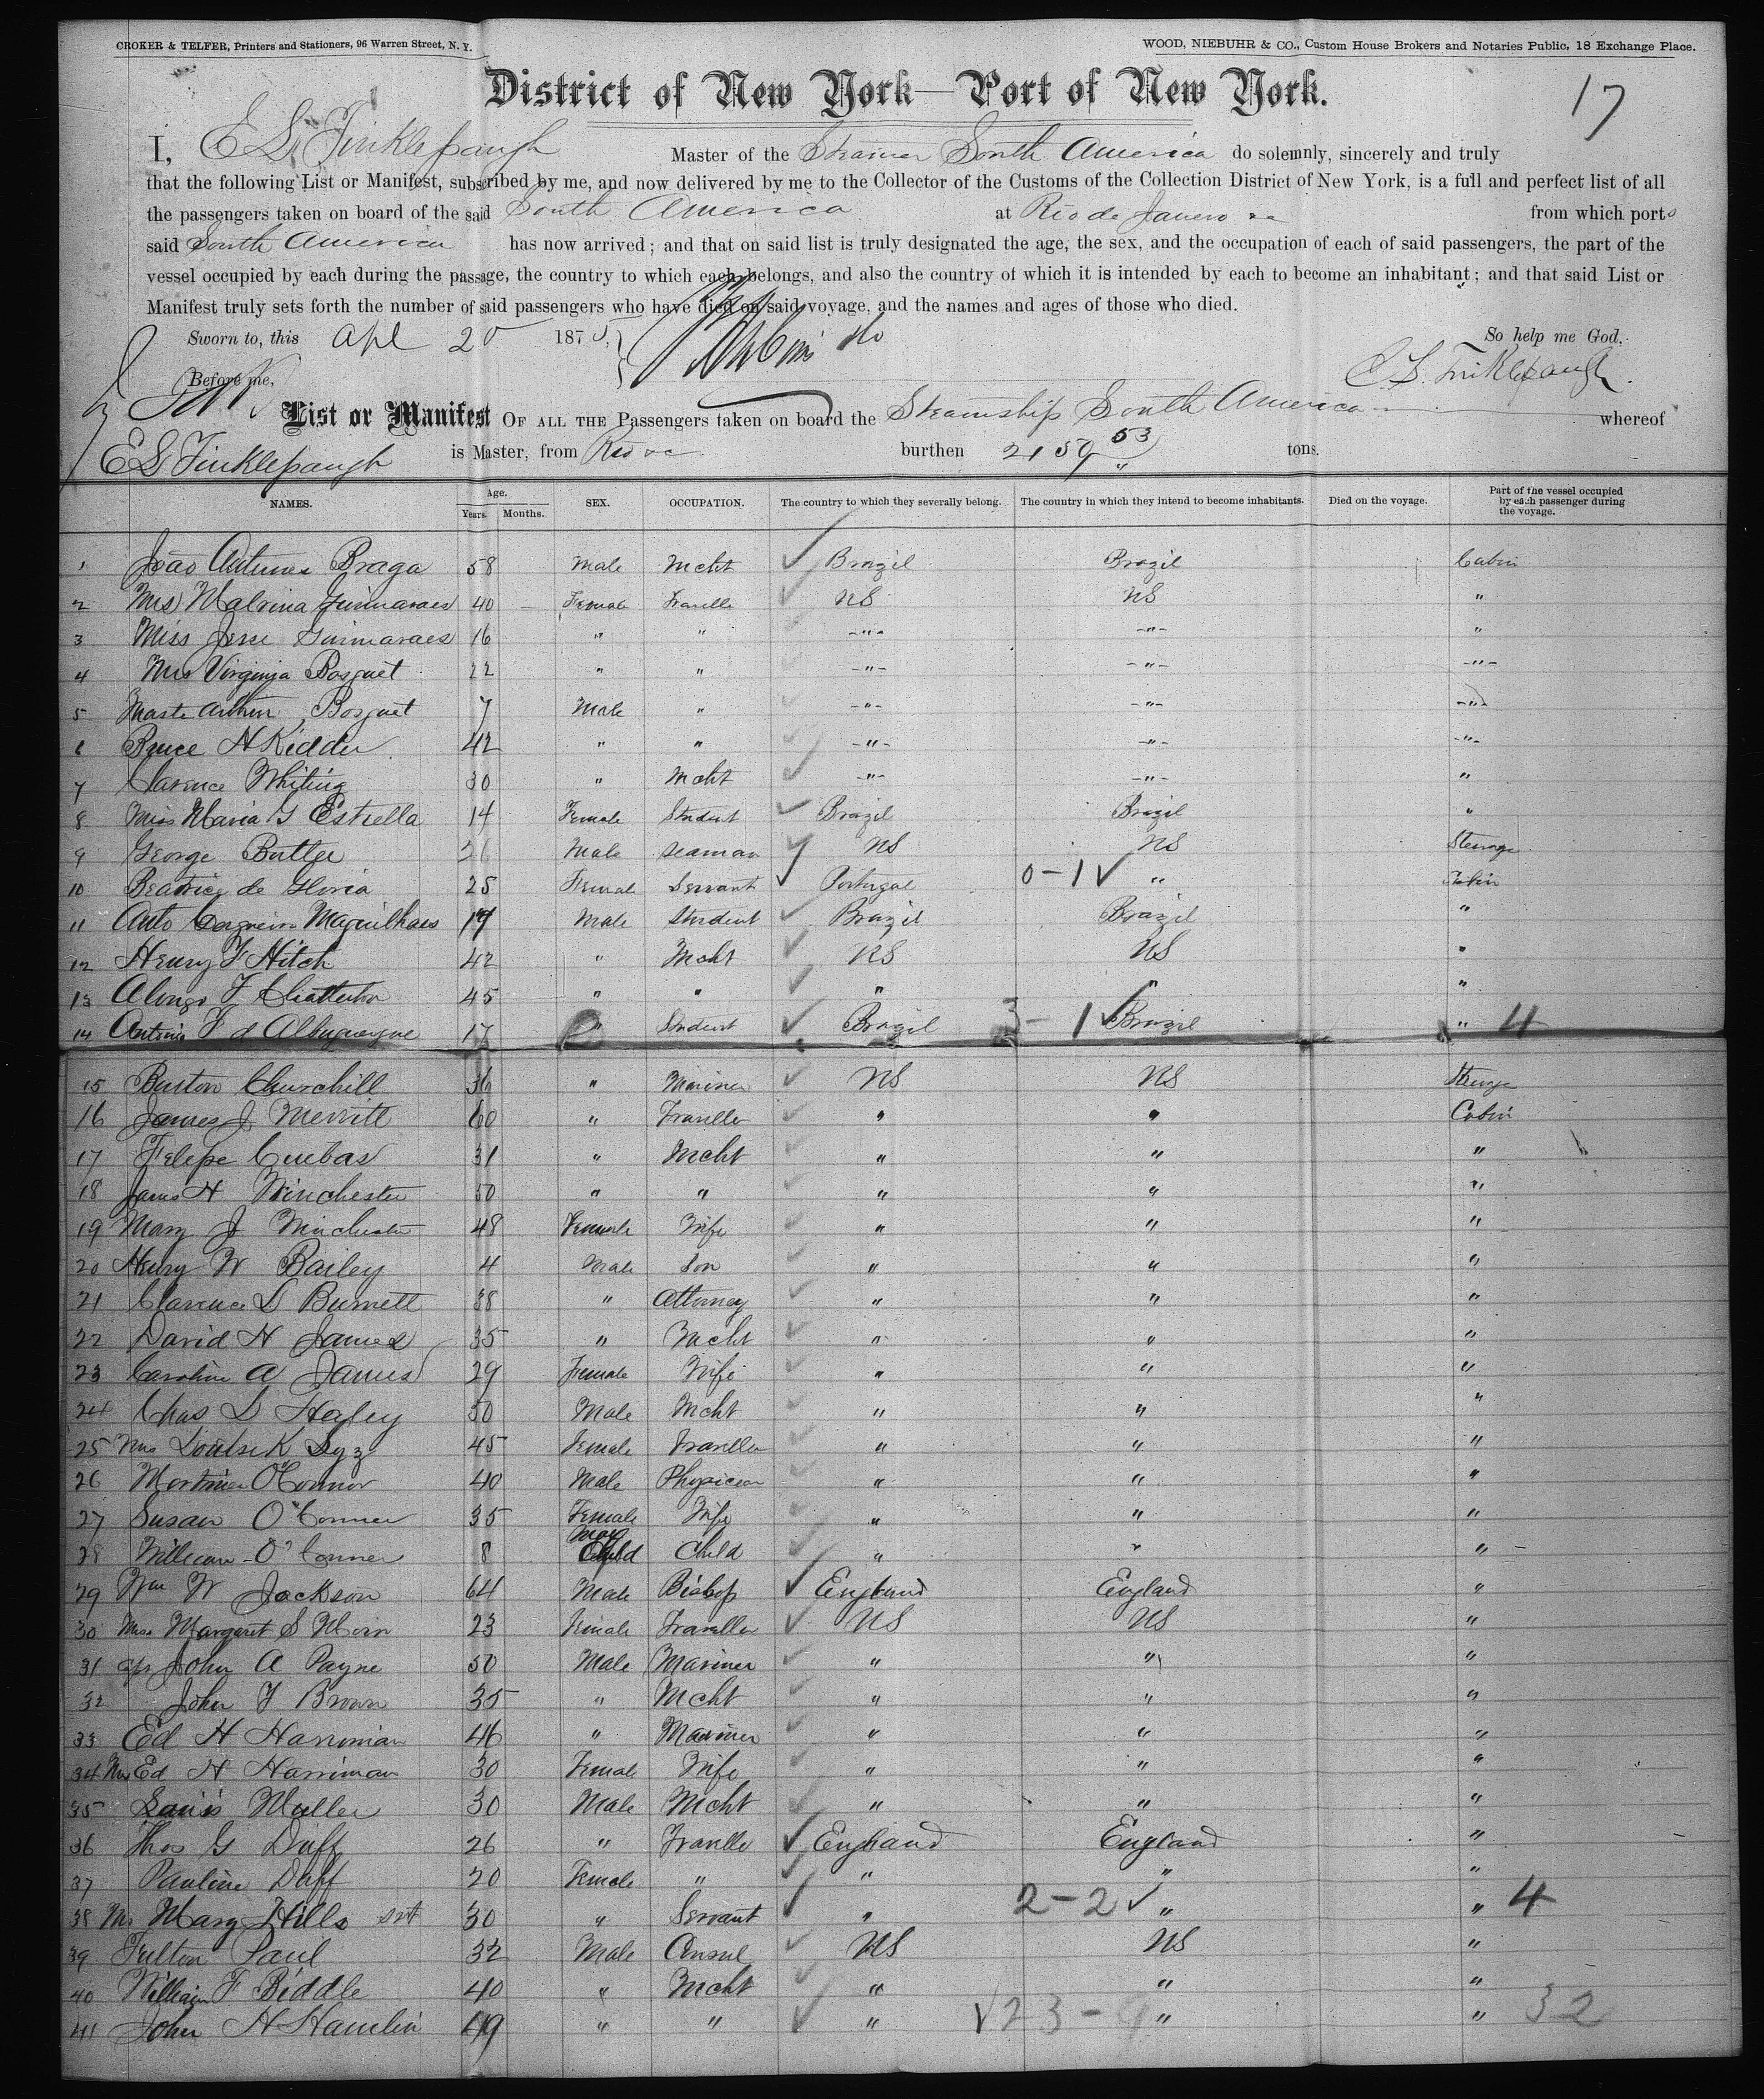 CROKER & TELFER, Printers and Stationers, 96 Warren Street, N. Y.
WOOD, NIEBUHR & CO., Custom House Brokers and Notaries Public, 18 Exchange Place.
District of New York—Port of New York.
17
I, E L Tinklepaugh Master of the Steamer South America do solemnly, sincerely and truly
that the following List or Manifest, subscribed by me, and now delivered by me to the Collector of the Customs of the Collection District of New York, is a full and perfect list of all
the passengers taken on board of the said South America at Rio de Janeiro from which port
said South America has now arrived; and that on said list is truly designated the age, the sex, and the occupation of each of said passengers, the part of the
vessel occupied by each during the passage, the country to which each belongs, and also the country of which it is intended by each to become an inhabitant; and that said List or
Manifest truly sets forth the number of said passengers who have died on said voyage, and the names and ages of those who died.
Sworn to, this Apl 20 1875, So help me God,
Before me, E L Tinklepaugh
List or Manifest OF ALL THE Passengers taken on board the Steamship South America whereof
E L Tinklepaugh is Master, from Rio burthen 2150 53 tons.
NAMES. Age. Years. Months. SEX. OCCUPATION. The country to which they severally belong. The country in which they intend to become inhabitants. Died on the voyage. Part of the vessel occupied by each passenger during the voyage.
1 João Antunes Braga 58 Male Mcht Brazil Brazil Cabin
2 Mrs Malvina Guimaraes 40 Female Traveller US US "
3 Miss Guimaraes 16 " " " " "
4 Mrs Virginia Bosquet 22 " " " " "
5 Master Bosquet 7 Male " " " "
6 Bruce H Kidder 42 " " " " "
7 Clarence Whiting 30 " Mcht " " "
8 Miss Maria G Estrella 14 Female Student Brazil Brazil "
9 George Buttge 26 Male Seaman US US Steerage
10 Beatriz de Gloria 25 Female Servant Portugal 0-1 " Cabin
11 Magailhaes 19 Male Student Brazil Brazil "
12 Henry F Hitch 42 " Mcht US US "
13 Alonzo F 45 " " " " "
14 Antonio F d Albuquerque 17 " Student Brazil 3-1 Brazil " 4
15 Burton Churchill 36 " Mariner US US Steerage
16 James J Merritt 60 " Traveller " " Cabin
17 Felepe Cuebas 31 " Mcht " " "
18 James H Winchester 50 " " " " "
19 Mary J Winchester 48 Female Wife " " "
20 Henry W Bailey 4 Male Son " " "
21 Clarence L Burnett 38 " Attorney " " "
22 David H James 35 " Mcht " " "
23 Caroline A James 29 Female Wife " " "
24 Chas L 50 Male Mcht " " "
25 Mrs Louise K Syz 45 Female Traveller " " "
26 Mortimer O'Connor 40 Male Physician " " "
27 Susan O'Conner 35 Female Wife " " "
28 William O'Conner 8 Male Child " " "
29 Wm W Jackson 64 Male Bishop England England "
30 Miss Margaret S 23 Female Traveller US US "
31 Cpt John A Payne 50 Male Mariner " " "
32 John F Brown 35 " Mcht " " "
33 Ed H Harriman 46 " Mariner " " "
34 Mrs Ed H Harriman 30 Female Wife " " "
35 Louis Muller 30 Male Mcht " " "
36 Thos G Duff 26 " Traveller England England "
37 Pauline Duff 20 Female " " " "
38 Mrs Mary Hills svt 30 " Servant " 2-2 " " 4
39 Fulton Paul 32 Male Consul US US "
40 William F Biddle 40 " Mcht " " "
41 John H Hamlin 49 " " " 23-9 " " 32